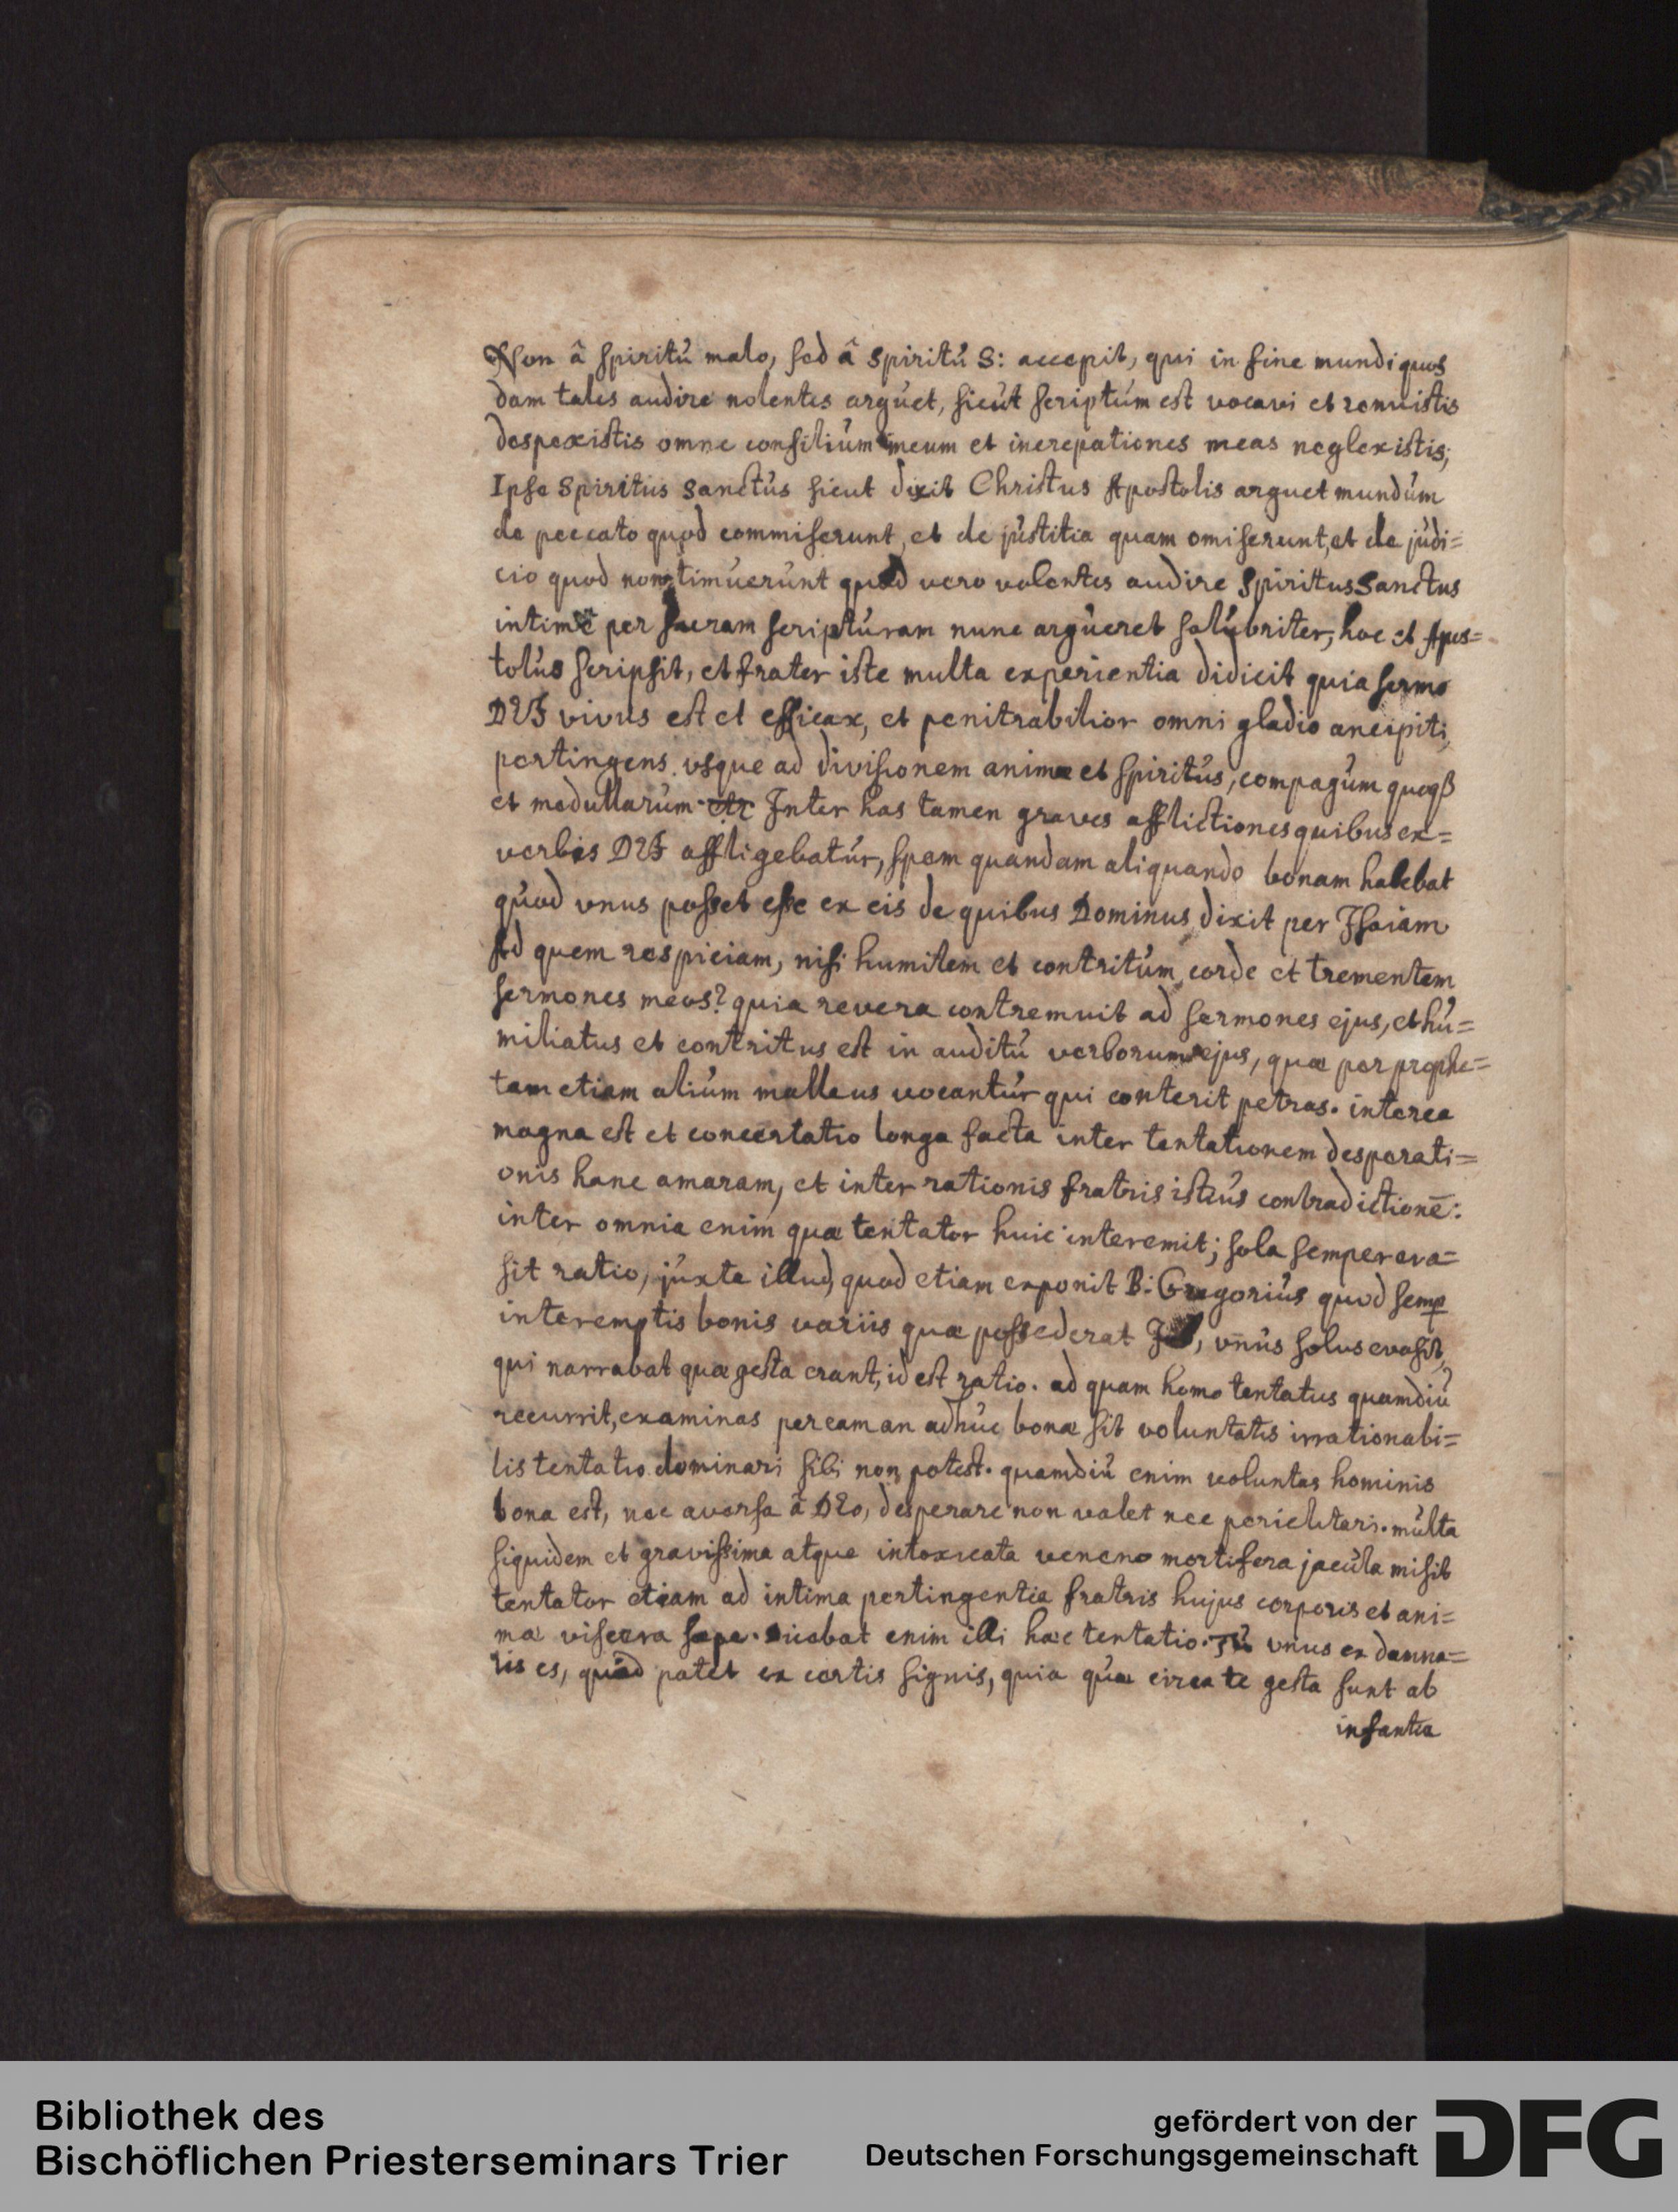 Non â spiritú malo, sed â spiritú S: accepit, qui in fine mundi quos
dam tales audire nolentes argúet, sicút scriptúm est vocavi et renuistis
despexistis omne consiliúm meum et increpationes meas neglexistis;
Ipse Spiritus Sanctús sicut dixit Christus Apostolis arguet mundúm
de peccato quod commiserunt, et de jústitia quam omiserunt, et de júdi=
cio quod non timúerúnt quod vero volentes audire Spiritus Sanctus
intimè per sacram scriptúram nunc argúeret salúbriter, hoc et Apos=
tolús scripsit, et frater iste multa experientia didicit quia sermo
DEI vivús est et efficax, et penitrabilior omni gladio ancipiti,
pertingens usque ad divisionem animæ et spiritús, compagúm quoqß
et medullarúm Inter has tamen graves afflictiones quibus ex=
verbis DEI affligebatúr, spem quandam aliquando bonam habebat
qúod vnus posset esse ex eis de quibus Dominus dixit per Isaiam
Ad quem respiciam, nisi humilem et contritúm corde et trementem
sermones meos? quia revera contremuit ad sermones ejus, et hú=
miliatus et contritus est in auditú verborum ejus, quæ per prophe=
tam etiam aliúm malleus vocantúr qui conterit petras. interea
magna est et concertatio longa facta inter tentationem desperati=
onis hanc amaram, et inter rationis fratris istiús contradictionē:
inter omnia enim quæ tentator huic interemit; sola semper eva=
sit ratio, júxta illud, quod etiam exponit B: Gregoriús quod semp
interemptis bonis variis quæ possederat Job, vnús solus evasit,
qui narrabat quæ gesta erant, id est ratio. ad quam homo tentatus quamdiú
recurrit, examinas per eam an adhúc bonæ sit voluntatis irrationabi=
lis tentatio dominari sibi non potest. quamdiú enim voluntas hominis
bona est, nec aversa â DEo, desperare non valet nec periclitari. múlta
siquidem et gravissima atque intoxicata veneno mortifera jacúla misit
tentator etiam ad intima pertingentia fratris hujus corporis et ani=
mæ viscera sæpe. Dicebat enim illi hæc tentatio. Tú vnus ex damna=
tis es, quod patet ex certis signis, quia quæ circa te gesta sunt ab
infantia
Bibliothek des
Bischöflichen Priesterseminars Trier
gefördert von der
Deutschen Forschungsgemeinschaft
DFG